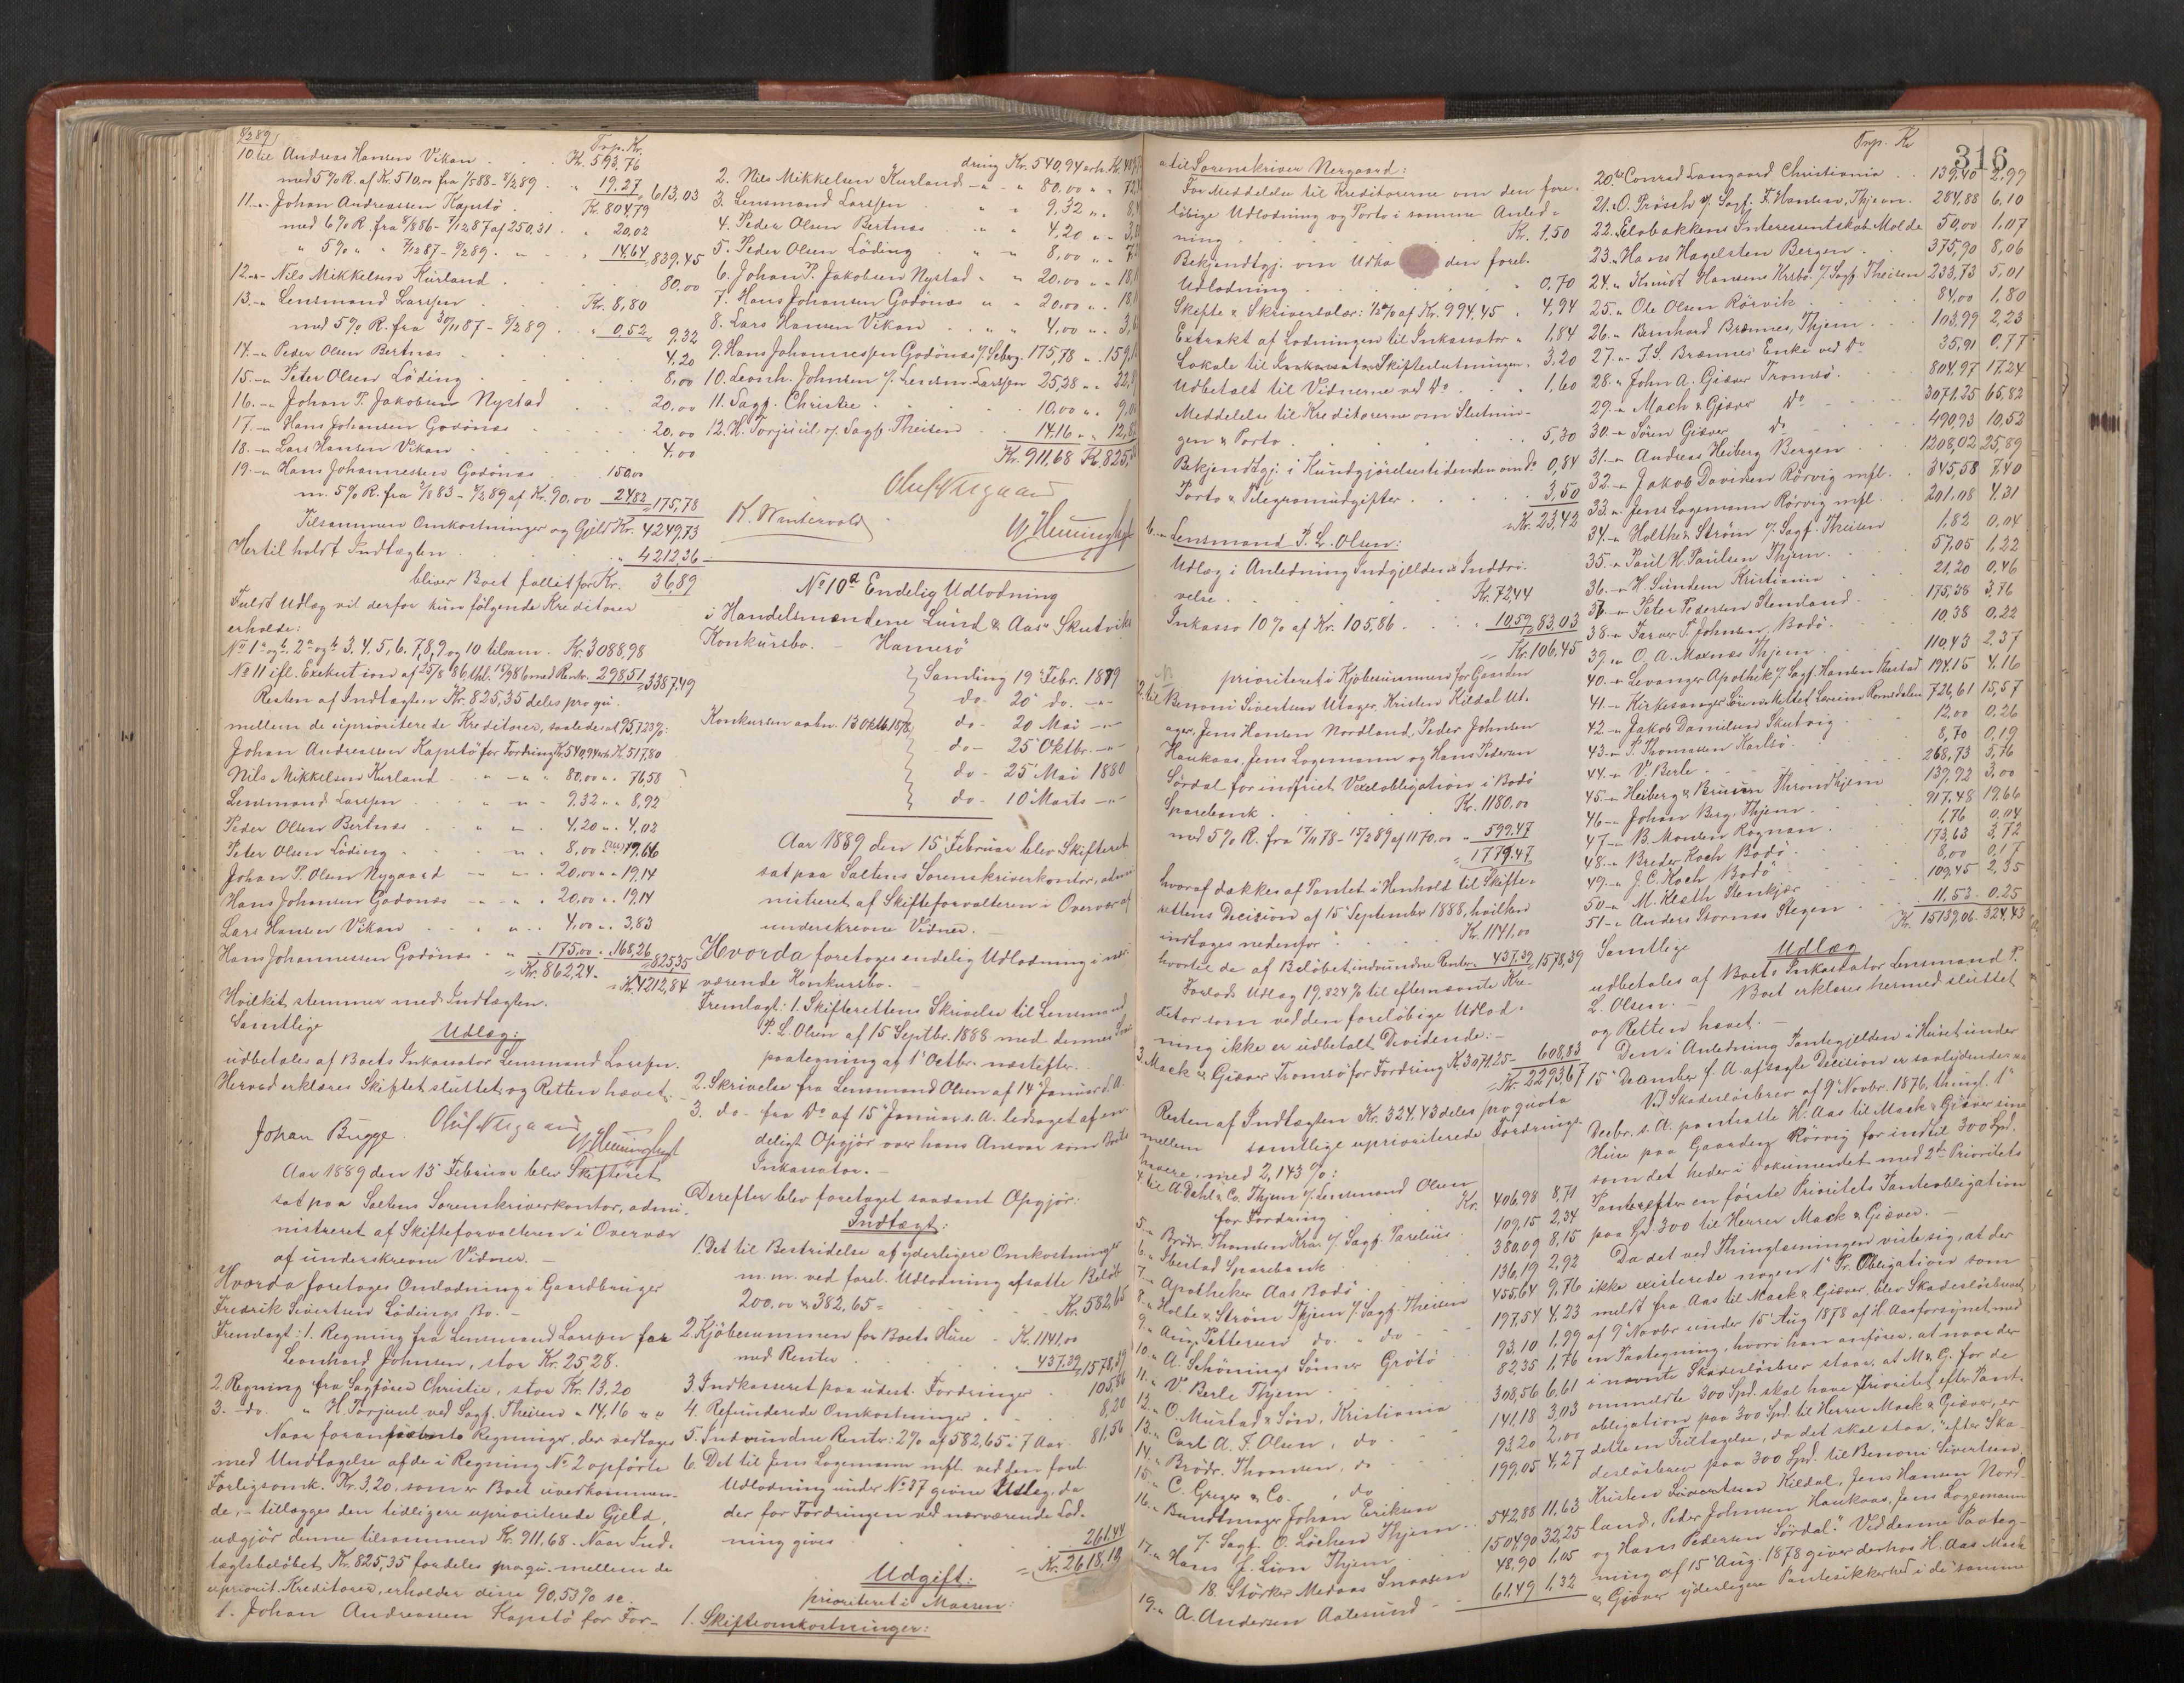 8/2 89
Trp. Kr.
10. til Andreas Hansen Vikan . . Kr. 593,76
med 5% R. af Kr. 510,00 fra 1/5 88 - 8/2 89 . " 19,27 " 613,03
11. " Johan Andreassen Kapstö . Kr. 804,79
med 6% R. fra 8/8 86 - 7/12 87 af 250,31 . " 20,02
" 5% " " 7/12 87 - 8/2 89 . " - " 14,64 " 839,45
12. " Nils Mikkelsen Kurland . . . 80,00
13. " Lensmand Larssen . . Kr. 8,80
med 5% R. fra 30/11 87 - 8/2 89 . . " 0,52 " 9,32
14. " Peder Olsen Bertnæs . . . 4,20
15. " Peter Olsen Löding . . . 8,00
16. " Johan P. Jakobsen Nystad . . 20,00
17. " Hans Johansen Godönæs . . 20,00
18. " Lars Hansen Vikan . . . 4,00
19. " Hans Johannessen Godönæs 150,00
m. 5% R. fra 2/8 83 - 8/2 89 af Kr. 90,00 24,82 " 175,78
Tilsammen Omkostninger og Gjeld Kr. 4249,73
Hertil holdt Indtægten . . . " 4212,36
bliver Boet fallit for Kr. 36,89
Fuldt Udlæg vil derfor kun følgende Kreditorer
erholde:
No 1a og b. 2a og b 3. 4. 5, 6. 7, 8, 9 og 10 tilsam. Kr. 3088,98
No 11 ifl. Exekution af 25/8 86, thl. 10/9 86 med Rentr. 298,51 " 3387,49
Resten af Indtægten Kr. 825,35 deles pro qu.
mellem de uprioriterede Kreditorer, saaledes at 95,723%:
Johan Andreassen Kapstö for Fordring Kr. 540,94 erh. Kr. 517,80
Nils Mikkelsen Kurland . " - " " 80,00 " " 76,58
Lensmand Larssen . . " " " 9,32 " " 8,92
Peder Olsen Bertnæs . . " " " 4,20 " " 4,02
Peter Olsen Löding . . " " " 8,00 79,66
Johan P. Olsen Nygaard " - " " 20,00 " " 19,14
Hans Johansen Godonæs " " " 20,00 " " 19,14
Lars Hansen Vikan . . " " " 4,00 " " 3,83
Hans Johannessen Godönæs . " " 175,00 " 168,26 " 825,35
" Kr. 862,24. " Kr. 4212,84
Hvilket stemmer med Indtægten.
Samtlige
Udlæg:
udbetales af Boets Inkassator Lensmand Larssen.
Herved erklæres Skiftet sluttet og Retten hævet.
Johan Bugge. Oluf Nergaard
Aar 1889 den 15 Februar blev Skifteret
sat paa Saltens Sorenskriverkontor, admi-
nistreret af Skifteforvalteren i Overvær
af underskrevne Vidner. -
Hvorda foretoges Omlodning i Gaardbruger
Fredrik Sivertsen Lödings Bo. -
Fremlagt: 1. Regning fra Lensmand Larssen for
Leonhard Johnsen, stor Kr. 25,28.
2 Regning fra Sagfører Christie, stor Kr. 13,20
3. do. " H. Torjuul ved Sagf. Theisen " 14,16 " "
Naar forannævnte Regninger, der vedtages
med Undtagelse af de i Regning No 2 opførte
Forligsomk. Kr. 3,20, som er Boet uvedkommen-
de, - tillægges den tidligere uprioriterede Gjeld,
udgjör denne tilsammen Kr. 911,68. Naar Ind-
tægtsbeløbet Kr. 825,35 fordeles pro qu. mellem de
upriorit. Kreditorer, erholder disse 90,53% se:
1. Johan Andreassen Kapstö for For-
dring Kr. 540,94 erh. Kr.
2. Nils Mikkelsen Kurland - " - " 80,00 " "
3. Lensmand Larssen . " " 9,32 " "
4. Peder Olsen Bertnæs . " " 4,20 " "
5. Peder Olsen Löding . " " 8,00 " "
6. Johan P. Jakobsen Nystad " " 20,00 " "
7. Hans Johansen Godönæs " " 20,00 " "
8. Lars Hansen Vikan . . " " 4,00 " "
9. Hans Johannessen Godönæs 175,78 "
10. Leonh. Johnsen v/ Lensm. Larssen 25,28 " "
11. Sagf. Christie . . . 10,00 " "
12. H. Torjuul v/ Sagf. Theisen . 14,16 " "
Kr. 911,68 Kr. 825,
Oluf Nergaard
K. Wintervold
No 10a Endelig Udlodning
i Handelsmændene Lund & Aas' Skutvik
Konkursbo. - Hamerö
Samling 19 Febr. 1879
do - 20 do. - " -
Konkursen aabn. 13 Oktb. 1878 do - 20 Mai - " -
do - 25 Oktbr. - " -
do - 25 Mai 1880
do - 10 Marts - " -
Aar 1889 den 15 Februar blev Skifteret
sat paa Saltens Sorenskriverkontor, admi-
nistreret af Skifteforvalteren i Overvær af
underskrevne Vidner. -
Hvorda foretoges endelig Udlodning i nær-
værende Konkursbo. -
Fremlagt: 1. Skifterettens Skrivelse til Lensmand
P. L. Olsen af 15 Septbr. 1888 med dennes
paategning af 1 Octbr. næstefter. -
2. Skrivelse fra Lensmand Olsen af 14 Januar d. A.
3. do - fra Do af 15 Januar s. A. ledsaget af en-
deligt Opgjör over hans Ansvar som Boets
Inkassator. -
Derefter blev foretaget saadant Opgjör:
Indtægt:
1. Det til Bestridelse af yderligere Omkostninger
m. m. ved forel. Udlodning afsatte Beløb
200,00 & 382,65 = . . Kr. 582,65
2. Kjöbesummen for Boets Huse . Kr. 1141,00
med Renter . . . " 437,39 " 1578,39
3. Indkasseret paa udest. Fordringer . 105,86
4. Refunderede Omkostninger . . . 8,20
5. Indvundne Renter: 2% af 582,65 i 7 Aar 81,56
6. Det til Jens Logemann mfl. ved den forel.
Udlodning under No 37 givne Udlæg, da
der for Fordringen ved nærværende Lod-
ning gives . . . 261,44
= Kr. 2618,19
Udgift:
prioriteret i Massen:
1. Skifteomkostninger:
316
a til Sorenskriver Nergaard:
For Meddelelse til Kreditorerne om den fore-
löbige Udlodning og Porto i samme Anled-
ning . . . Kr. 1,50
Bekjendtgj. om den forel.
Udlodning . . . " 0,70
Skifte & Skriversalær: 1/2% af Kr. 994,45 " 4,94
Extrakt af Lodningen til Inkassator " 1,84
Lokale til Skifteslutningen . 3,20
Udbetalt til Vidnerne ved Do . " 1,60
Meddelelse til Kreditorerne om Slutnin-
gen & Porto . . . 5,30
Bekjendtgj. i Kundgjörelsestidenden om Do 0,84
Porto & Telegramudgifter . . . 3,50
" Kr. 23,42
b. " Lensmand P. L. Olsen:
Udlæg i Anledning Indgjeldens Inddri-
velse . . Kr. 72,44
Inkasso 10% af Kr. 105,86 . . 10,59 83,03
" Kr. 106,45
prioriteret i Kjöbesummen for Gaarden
2. til Benoni Sivertsen Utager, Kristen Kildal Ut-
ager, Jens Hansen Nordland, Peder Johnsen
Haukaas, Jens Logemann og Hans Pedersen
Sördal for indfriet Vexelobligation i Bodö
Sparebank . . Kr. 1180,00
med 5% R. fra 17/11 78 - 15/2 89 af 1170,00 " 599,47
" 1779,47
hvoraf dækkes af Pantet i Henhold til Skifte-
rettens Decision af 15 September 1888, hvilken
indtages nedenfor . . Kr. 1141,00
hvortil de af Beløbet indvundne Renter . 437,39 " 1578,39
Forlods Udlæg 19,824% til efternævnte Kre-
ditor som ved den foreløbige Udlod-
ning ikke er udbetalt Dividende: -
3. Mack & Giæver Tromsö for Fordring Kr. 3071,25 - 608,83
" Kr. 2293,67
Resten af Indtægten Kr. 324,43 deles pro quota
mellem samtlige uprioriterede Fordrings-
havere, med 2,143%:
4. til A. Dahl & Co. Thjem v/ Lensmand Olsen
for Fordring . . Kr. 406,98 8,71
5. " Brödr. Thomsen Kra. v/ Sagf. Parelius . 109,15 2,34
6. " Ibestad Sparebank . . 380,09 8,15
7. " Apotheker Aas Bodö . . 136,19 2,92
8. " Holte & Ström Thjem v/ Sagf. Theisen 455,64 9,76
9. " Aug. Pettersen do. " do - 197,54 4,23
10. " A. Schönings Sönner Grötö . 93,10 1,99
11. " V. Berle Thjem . . 82,35 1,76
12. " O. Mustad & Sön, Kristiania . 308,56 6,61
13. " Carl A. F. Olsen, do . . 141,18 3,03
14. " Brödr. Thomsen, do . . 93,20 2,00
15. " C. Greger & Co. , do . . 199,05 4,27
16. " Bundtmager Johan Eriksen
v/ Sagf. O. Löchen Thjem . . 542,88 11,63
17. " Hans f. Lion Thjem . . 1504,90 32,25
18. Störker Medaas Snaasen . 48,90 1,05
19. " A. Andersen Aalesund - . 61,49 1,32
Trp. Kr
20. til Conrad Langaard Christiania . . 139,40 2,99
21. " O. Prösch v/ Sagf. F. Hansen, Thjem . 284,88 6,10
22. " Selsbakkens Interessentskab Molde 50,00 1,07
23. " Hans Hagelsten Bergen . . 375,90 8,06
24. " Knudt Hansens Krsbo. v/ Sagf. Theisen 233,73 5,01
25. " Ole Olsen Rörvik . . . 84,00 1,80
26. " Bernhard Brænnes, Thjem . . 103,99 2,23
27. " F. S. Brænnes Enke ved Do . 35,91 0,77
28. " John A. Giæver Tromsö . . 804,97 17,24
29. " Mack & Giæver Do - . 3071,25 65,82
30. " Sören Giæver do - . 490,93 10,52
31. " Andreas Heiberg Bergen . . 1208,02 25,89
32. " Jakob Davidsen Rörvig mfl . . 345,58 7,40
33. " Jens Logemann Rörvig mfl . . 201,08 4,31
34. " Holthe & Ström v/ Sagf. Theisen 1,82 0,04
35. " Paul H. Paulsen Thjem . . 57,05 1,22
36. " H. Sundem Kristiania . . 21,20 0,46
37. " Peter Pedersen Stenland . . 175,38 3,76
38. " Farver P. Johnsen, Bodö . . 10,38 0,22
39. " O. A. Moxnæs Thjem . . 110,43 2,37
40. " Levanger Apothek v/ Sagf. Hansen 194,15 4,16
41. " Kirkesanger Sörens 726,61 15,57
42. " Jakob Danielsen Skutvig . . 12,00 0,26
43. " P. Thomassen Karlsö . . 8,70 0,19
44. " V. Berle . - . 268,73 5,76
45. " Heiberg & Bruun Throndhjem 139,92 3,00
46. " Johan Berg, Thjem . . 917,48 19,66
47. " B. Monsen Rognan . . 1,76 0,04
48. " Breder Koch Bodö . . 173,63 3,72
49. " J. C. Koch Bodö . . 8,00 0,17
50. " M. Kleth Stenkjær . . 109,45 2,35
51. " Anders Stornæs Stegen . . 11,53 0,25
Kr. 15139,06. 324,43
Samtlige Udlæg
udbetales af Boets Inkassator Lensmand P.
L. Olsen. - Boet erklæres hermed sluttet
og Retten hævet. -
Den i Anledning Pantegjelden i Huset under
15 Decomber f. A. afsagte Decision er saalydende:
Ved Skadeslösbrev af 9 Novbr. 1876, thingl. 1
Decbr. s. A. pantsatte H. Aas til Mack & Giæver sine
Huse paa Gaarden Rörvig for indtil 300 Spd.
som det heder i Dokumentet med 2den Prioritets
Panteret efter en förste Prioritets Panteobligation
paa Spd 300 til Herrer Mack & Giæver. -
Da det ved Thinglæsningen viste sig, at der
ikke existerede nogen 1 Pr. Obligation som
meldt fra Aas til Mack & Giæver, blev Skadeslösbrevet
af 9 Novbr under 15 Aug 1878 af H. Aas forsynet med
en Paategning, hvori han anförer, at naar der
i nævnte Skadeslösbrev staar, at M. & G. for de
ommeldte 300 Spd. skal have Prioritet efter Pant-
obligation paa 300 Spd. til Herrer Mack & Giæver, er
dette en Feiltagelse, da det skal staa, "efter Ska-
deslösbrev paa 300 Spd. til Benoni Sivertsen,
Kristen Sivertsen Kildal, Jens Hansen Nord-
land, Peder Johnsen Haukaas, Jens Logemann
og Hans Pedersen Sördal." Ved denne Paateg-
ning af 15 Aug. 1878 giver derhos H. Aas Mack
& Giæver yderligere Pantesikkerhed i de samme